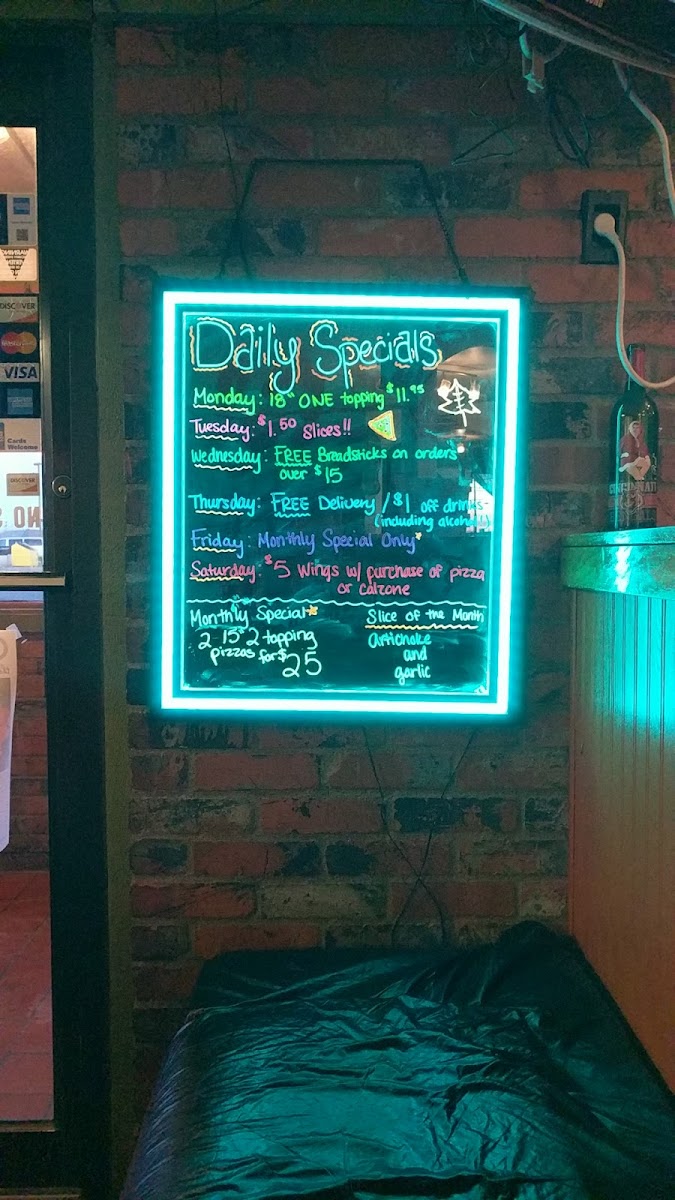 Daily Specials
Monday: 18" ONE topping $11.95
Tuesday: $1.50 Slices!!
Wednesday: FREE Breadsticks on orders
over $15
Thursday: FREE Delivery / $1 off drinks
(including alcohol)
Friday: Monthly Special Only*
Saturday: $5 Wings w/ purchase of pizza
or calzone
Monthly Special
2 15" 2 topping
pizzas for $25
Slice of the Month
Artichoke
and
garlic
DISCOVER
MasterCard
VISA
Cards
Welcome
DISCOVER
NO S